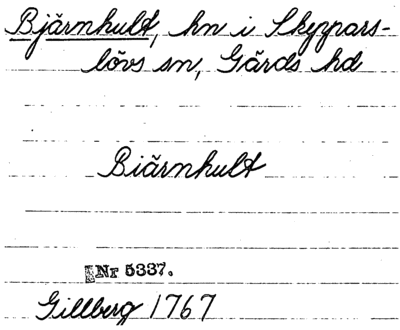 Bjärnhult, hn i Skeppars-
lövs sn, Gärds hd
Biärnhult
Nr 5337.
Gillberg 1767